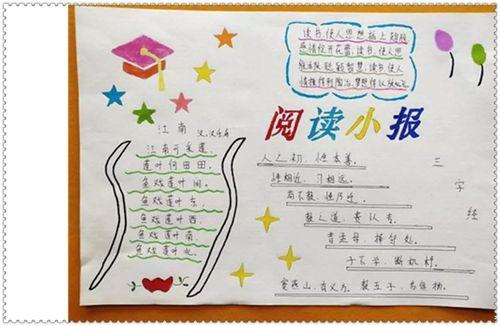 读书,使人思想插上翅膀
感情绽开花蕾。读书,使人思
阅读小报
江南
汉.汉乐府
江南可采莲,
莲叶何田田,
鱼戏莲叶间。
鱼戏莲叶东,
鱼戏莲叶西,
鱼戏莲叶南,
鱼戏莲叶北。
三字经
人之初,性本善。
性相近,习相远。
苟不教,性乃迁。
教之道,贵以专。
昔孟母,择邻处。
子不学,断机杼。
窦燕山,有义方。教五子,名俱扬。